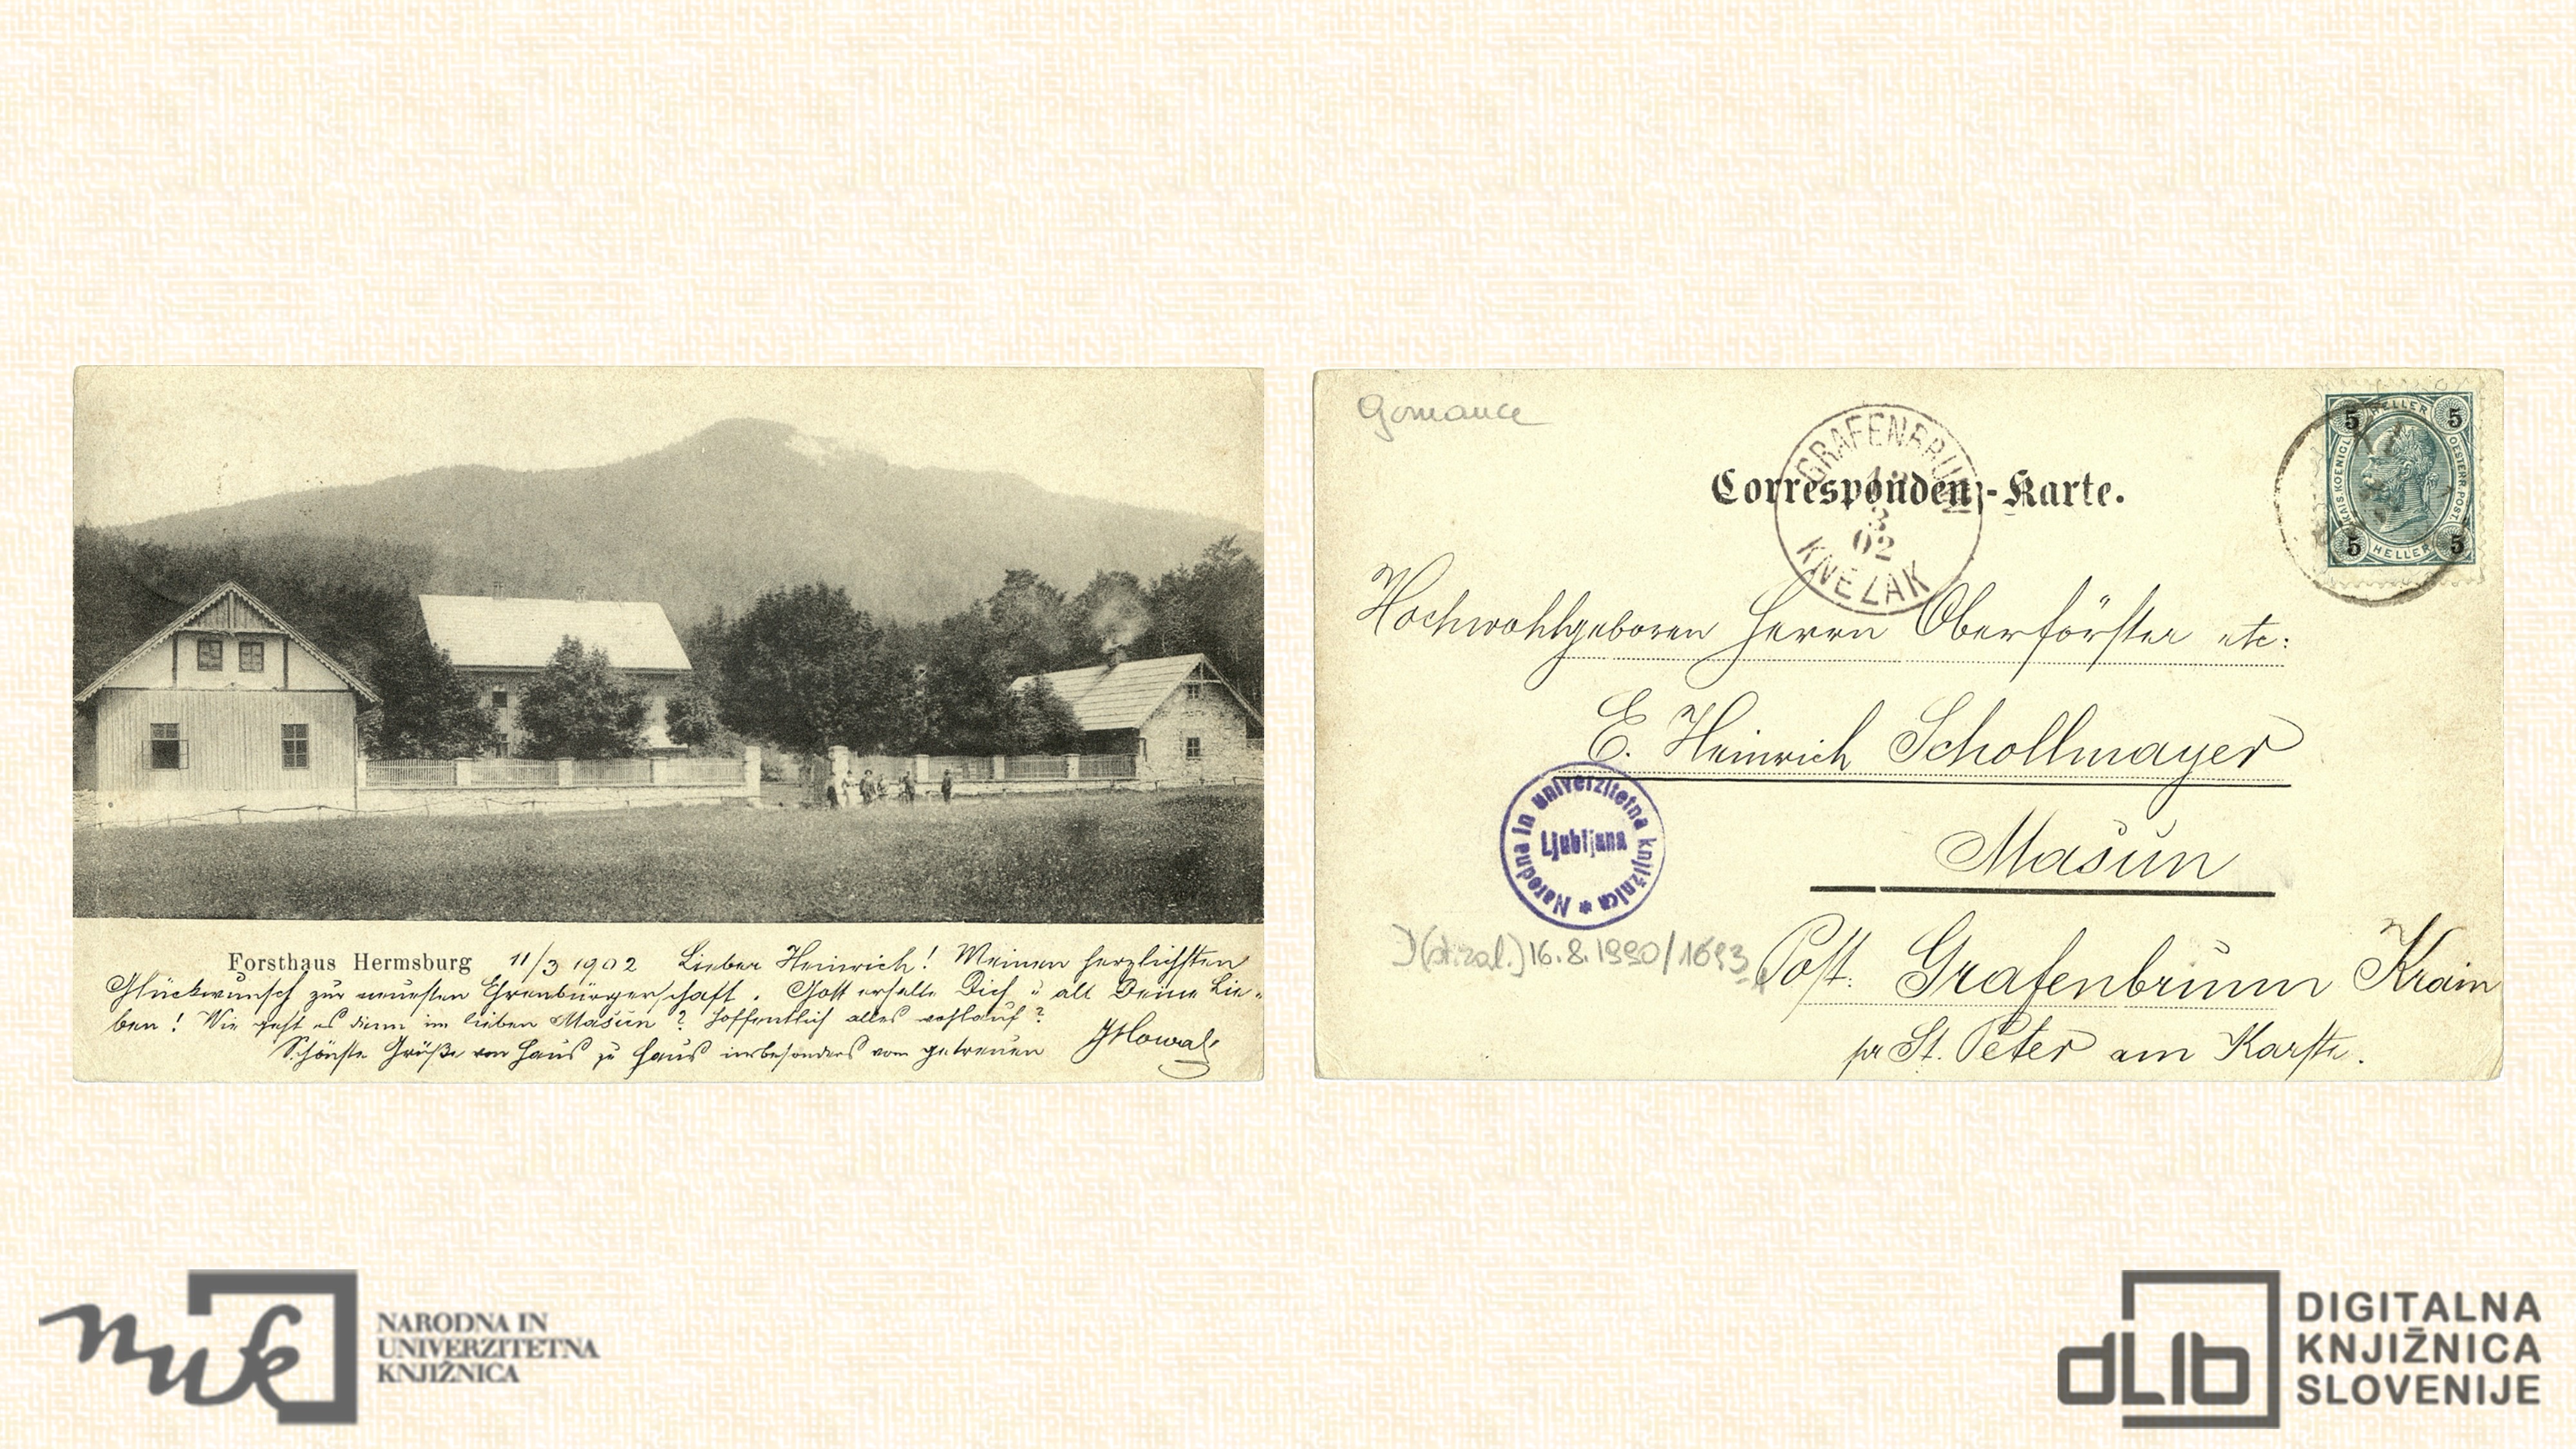 Forsthaus Hermsburg 11/3 1902 Lieber Heinrich! Meinen herzlichsten
Glückwunsch zur neuesten Ehrenbürgerschaft. Gott erhalte Dich u all Deine Lie-
ben! Wie geht es denn im lieben Mašun? Hoffentlich alles wohlauf?
Schönste Grüße von Haus zu Haus insbesonders vom getreuen
Gomance
GRAFENBRUN
3
02
KNEŽAK
Correspondenz-Karte.
5 HELLER 5
KAIS. KOENIGL. OESTERR. POST.
5 HELLER 5
Hochwohlgeboren Herrn Oberförster etc:
E. Heinrich Schollmayer
Mašun
Narodna in univerzitetna knjižnica *
Ljubljana
16.8.1990/1693
Post: Grafenbrunn Krain
pr St. Peter am Karste.
nuk
NARODNA IN
UNIVERZITETNA
KNJIŽNICA
dLIb
DIGITALNA
KNJIŽNICA
SLOVENIJE